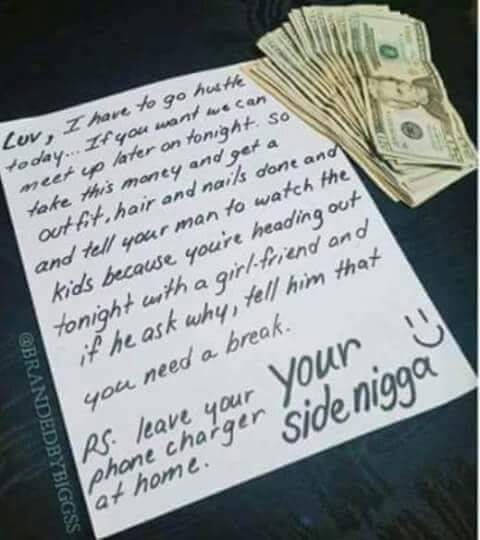 Luv, I have to go hustle
today... If you want we can
meet up later on tonight. So
take this money and get a
outfit, hair and nails done and
and tell your man to watch the
kids because you're heading out
tonight with a girl-friend and
if he ask why, tell him that
you need a break.
PS. leave your
phone charger
at home.
Your
side nigga
@BRANDEDBYBIGGSS